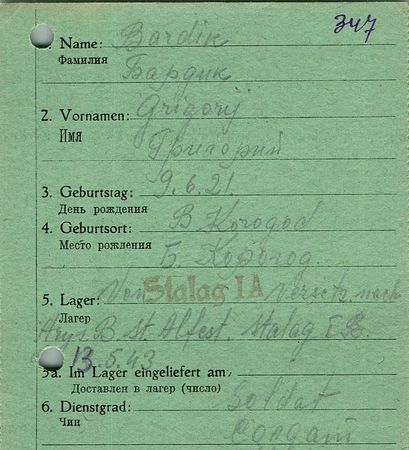 347
1. Name: Bardik
Фамилия
Бардик
2. Vornamen: Grigorij
Имя
Григорий
3. Geburtstag: 9.6.21.
День рождения
4. Geburtsort: B Korogod
Место рождения
Б. Корогод
Von Stalag IA Versetz. nach
5. Lager:
Лагерь
B. St. Stalag I B.
13.5.43
5a. Im Lager eingeliefert am:
Доставлен в лагерь (число)
6. Dienstgrad: Soldat
Чин
Солдат